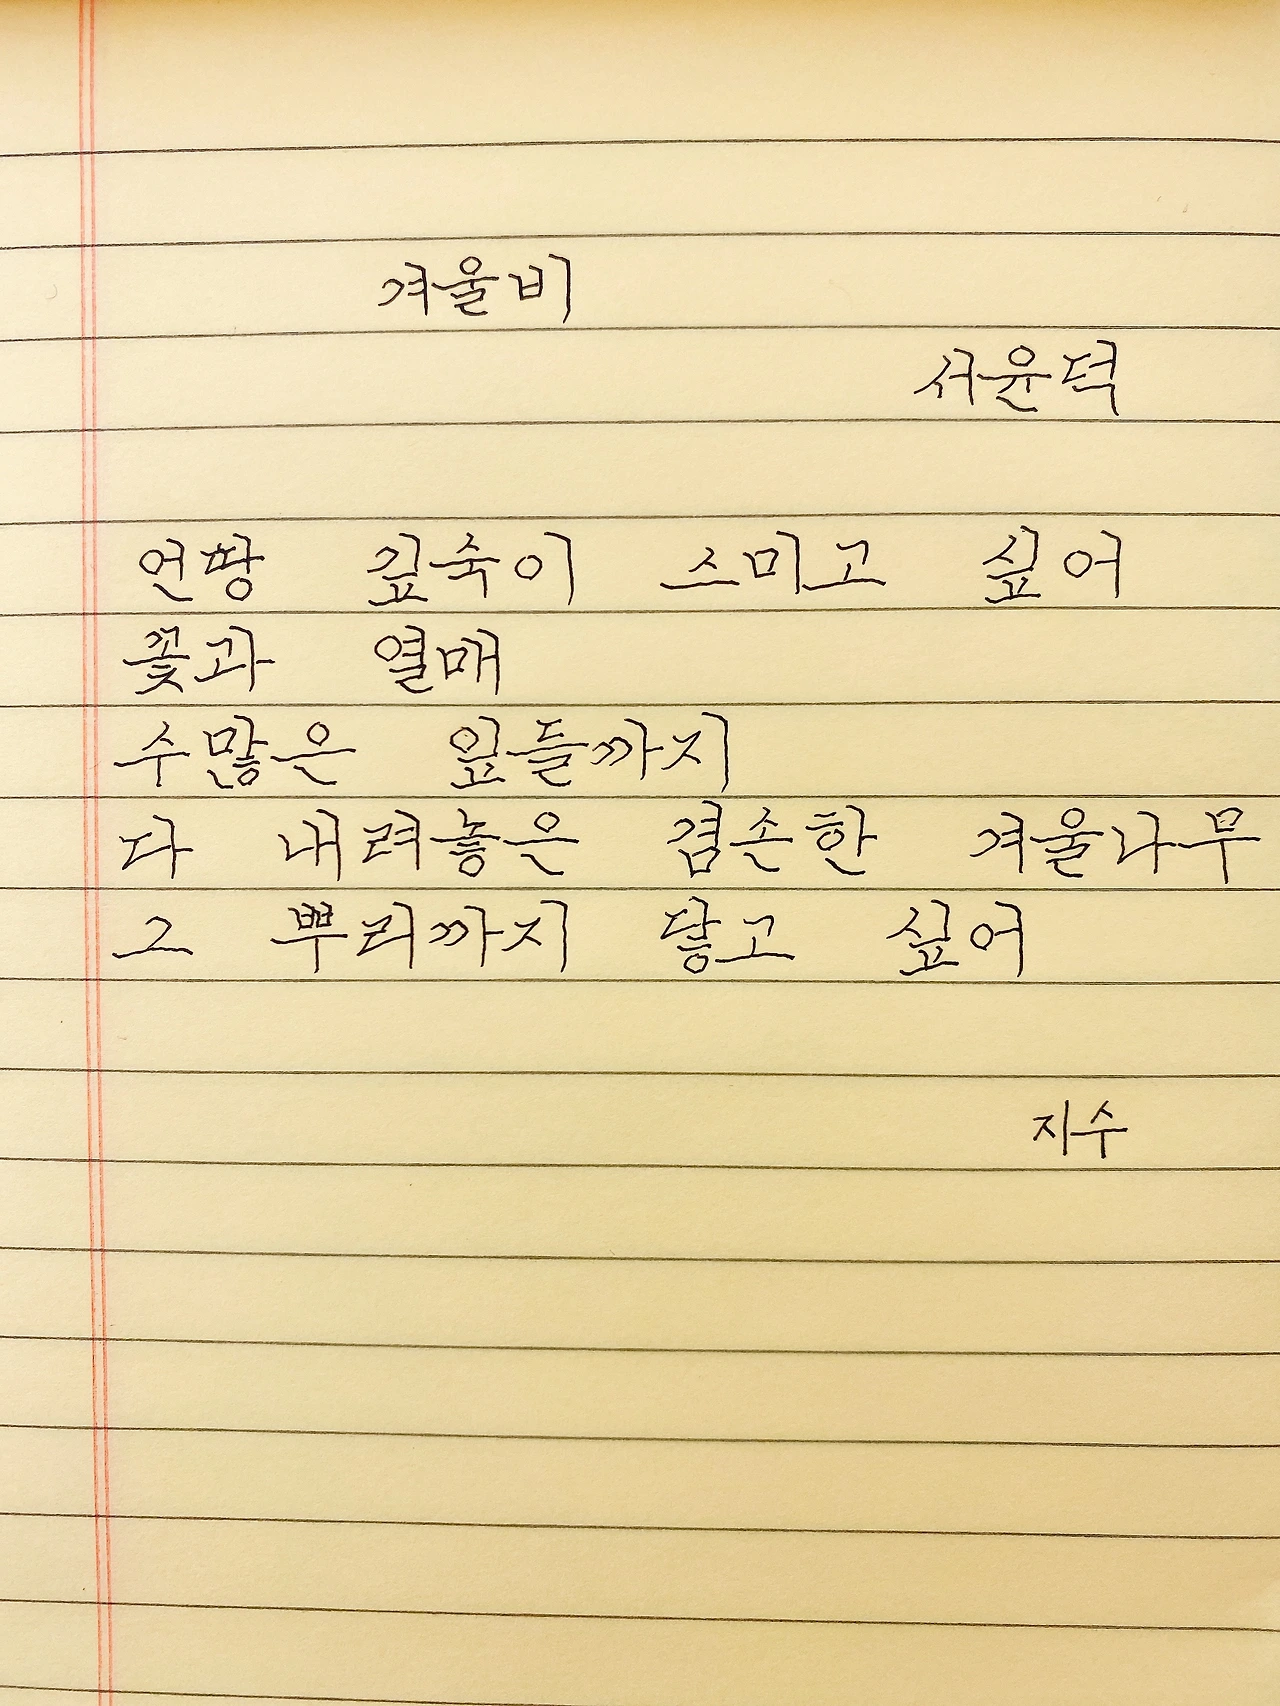 겨울비
서윤덕
언땅 깊숙이 스미고 싶어
꽃과 열매
수많은 잎들까지
다 내려놓은 겸손한 겨울나무
그 뿌리까지 닿고 싶어
지수